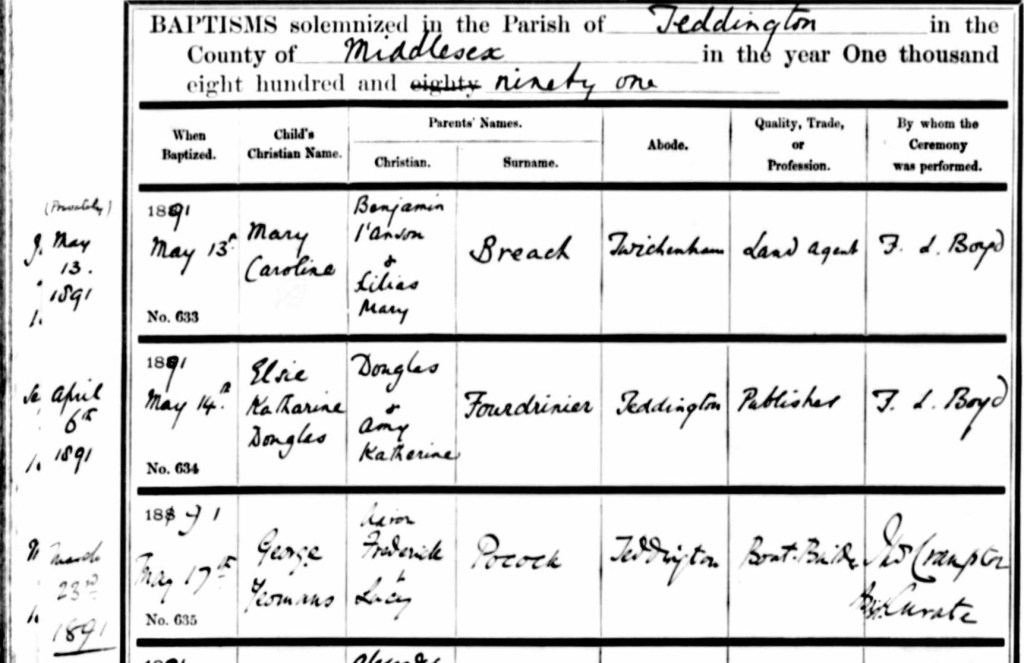 BAPTISMS solemnized in the Parish of Teddington in the
County of Middlesex in the year One thousand
eight hundred and eighty ninety one
When Baptized.
Child's Christian Name.
Parents' Names.
Christian.
Surname.
Abode.
Quality, Trade, or Profession.
By whom the Ceremony was performed.
(Privately)
May
13.
1891
1891
May 13th
No. 633
Mary
Caroline
Benjamin
I'Anson
&
Lilias
Mary
Breach
Twickenham
Land Agent
F. L. Boyd
April
6th
1891
1891
May 14th
No. 634
Elsie
Katharine
Douglas
Douglas
&
Amy
Katherine
Fourdrinier
Teddington
Publisher
F. L. Boyd
March
23rd
1891
1891
May 17th
No. 635
George
Yeomans
Aaron
Frederick
&
Lucy
Pocock
Teddington
Boat-Builder
Crampton
Curate
1891